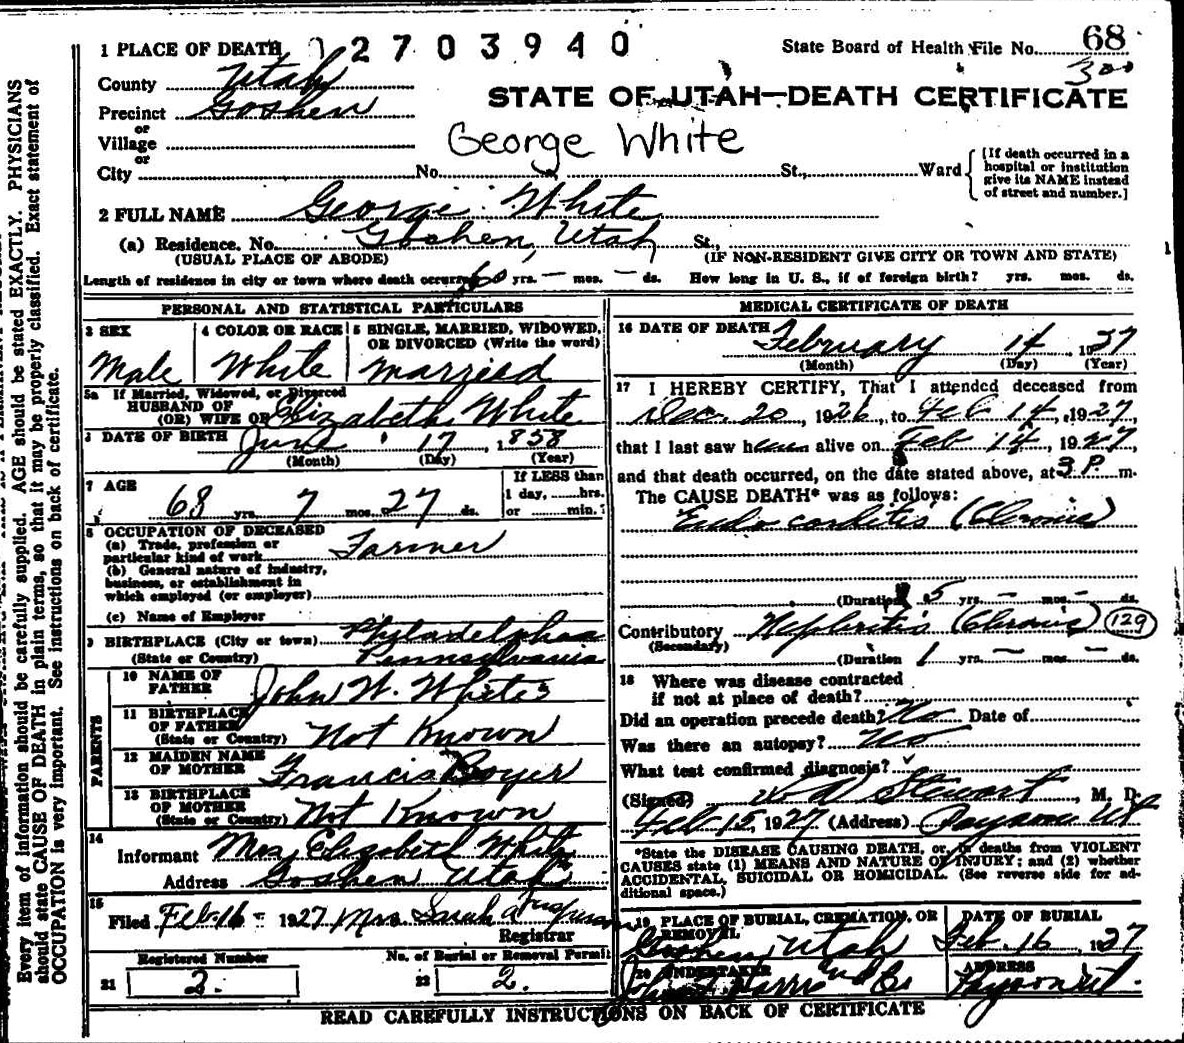 1 PLACE OF DEATH 2703940 State Board of Health File No. 68
County Utah 300
Precinct Goshen STATE OF UTAH—DEATH CERTIFICATE
or
Village George White
or
City No. St., Ward [If death occurred in a hospital or institution give its NAME instead of street and number.]
2 FULL NAME George White
(a) Residence. No. Goshen, Utah St.,
(USUAL PLACE OF ABODE) (IF NON-RESIDENT GIVE CITY OR TOWN AND STATE)
Length of residence in city or town where death occurred 60 yrs. — mos. — ds. How long in U. S., if of foreign birth? yrs. mos. ds.
PERSONAL AND STATISTICAL PARTICULARS
3 SEX 4 COLOR OR RACE 5 SINGLE, MARRIED, WIDOWED, OR DIVORCED (Write the word)
Male White Married
5a If Married, Widowed, or Divorced
HUSBAND OF
(OR) WIFE OF Elizabeth White
DATE OF BIRTH June 17, 1858
(Month) (Day) (Year)
7 AGE If LESS than
1 day, hrs.
68 yrs. 7 mos. 27 ds. or min.?
8 OCCUPATION OF DECEASED
(a) Trade, profession or
particular kind of work Farmer
(b) General nature of industry,
business, or establishment in
which employed (or employer)
(c) Name of Employer
9 BIRTHPLACE (City or town) Philadelphia
(State or Country) Pennsylvania
PARENTS
10 NAME OF
FATHER John W. White
11 BIRTHPLACE
OF FATHER
(State or Country) Not Known
12 MAIDEN NAME
OF MOTHER Francis Boyer
13 BIRTHPLACE
OF MOTHER
(State or Country) Not Known
14
Informant Mrs Elizabeth White
Address Goshen Utah
15
Filed Feb. 16 - 1927 Mrs. Sarah a
Registrar
Registered Number No. of Burial or Removal Permit
21 2. 22 2.
MEDICAL CERTIFICATE OF DEATH
16 DATE OF DEATH February 14 1927
(Month) (Day) (Year)
17 I HEREBY CERTIFY, That I attended deceased from
Dec. 20, 1926, to Feb 14, 1927,
that I last saw him alive on Feb 14, 1927
and that death occurred, on the date stated above, at 3 P. m.
The CAUSE DEATH* was as follows:
Endo carditis (Chronic)
(Duration) 5 yrs. — mos. — ds.
Contributory Nephritis (Chronic) 129
(Secondary)
(Duration 1 yrs. — mos. — ds.
18 Where was disease contracted
if not at place of death?
Did an operation precede death? No Date of
Was there an autopsy? No
What test confirmed diagnosis?
(Signed) Stewart, M. D.
Feb 15, 1927 (Address) Payson Ut
*State the DISEASE CAUSING DEATH, or, in deaths from VIOLENT
CAUSES state (1) MEANS AND NATURE OF INJURY; and (2) whether
ACCIDENTAL, SUICIDAL OR HOMICIDAL. (See reverse side for ad-
ditional space.)
19 PLACE OF BURIAL, CREMATION, OR REMOVAL DATE OF BURIAL
Goshen, Utah Feb. 16, 1927
20 UNDERTAKER ADDRESS
Harris and Co Payson Ut.
READ CAREFULLY INSTRUCTIONS ON BACK OF CERTIFICATE
Every item of information should be carefully supplied. AGE should be stated EXACTLY. PHYSICIANS
should state CAUSE OF DEATH in plain terms, so that it may be properly classified. Exact statement of
OCCUPATION is very important. See instructions on back of certificate.